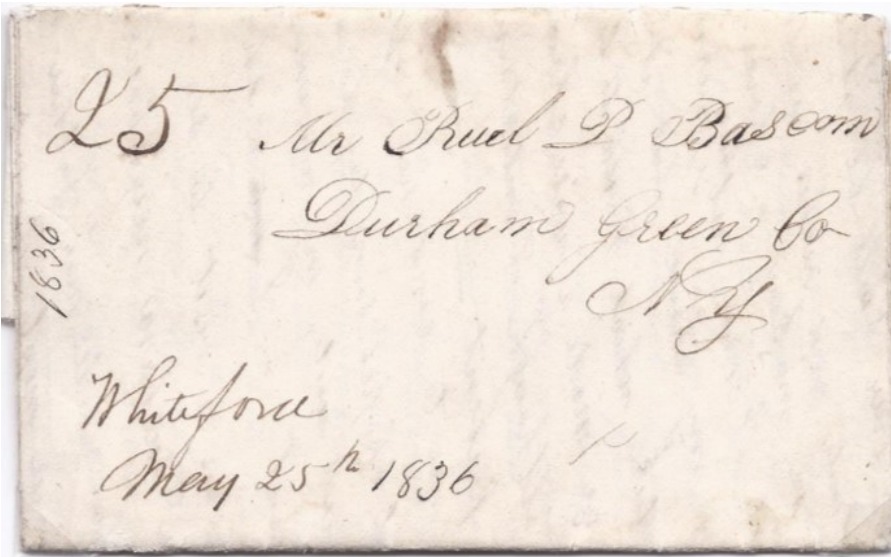 25
Mr Ruel P Bascom
Durham Green Co
NY
1836
Whiteford
May 25h 1836